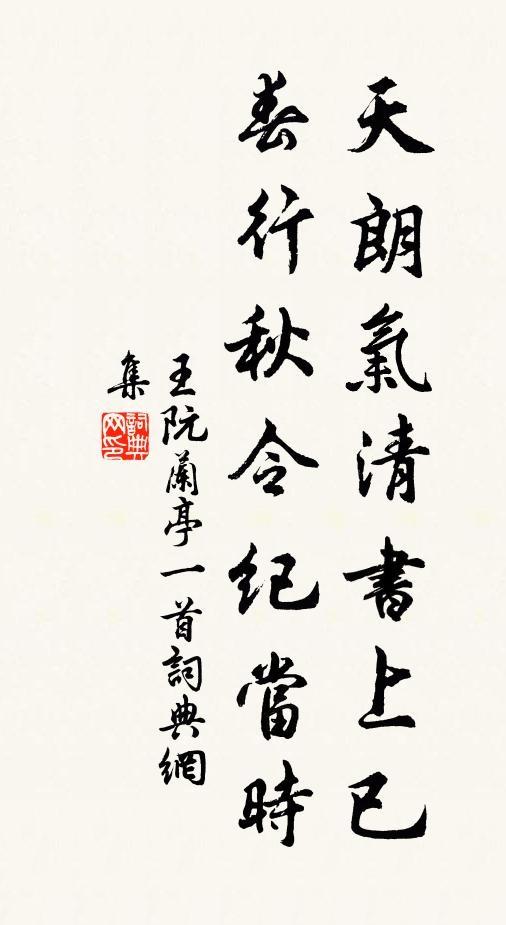 天朗氣清書上巳
春行秋令紀當時
王阮蘭亭一首詞典網
集
詞典網印